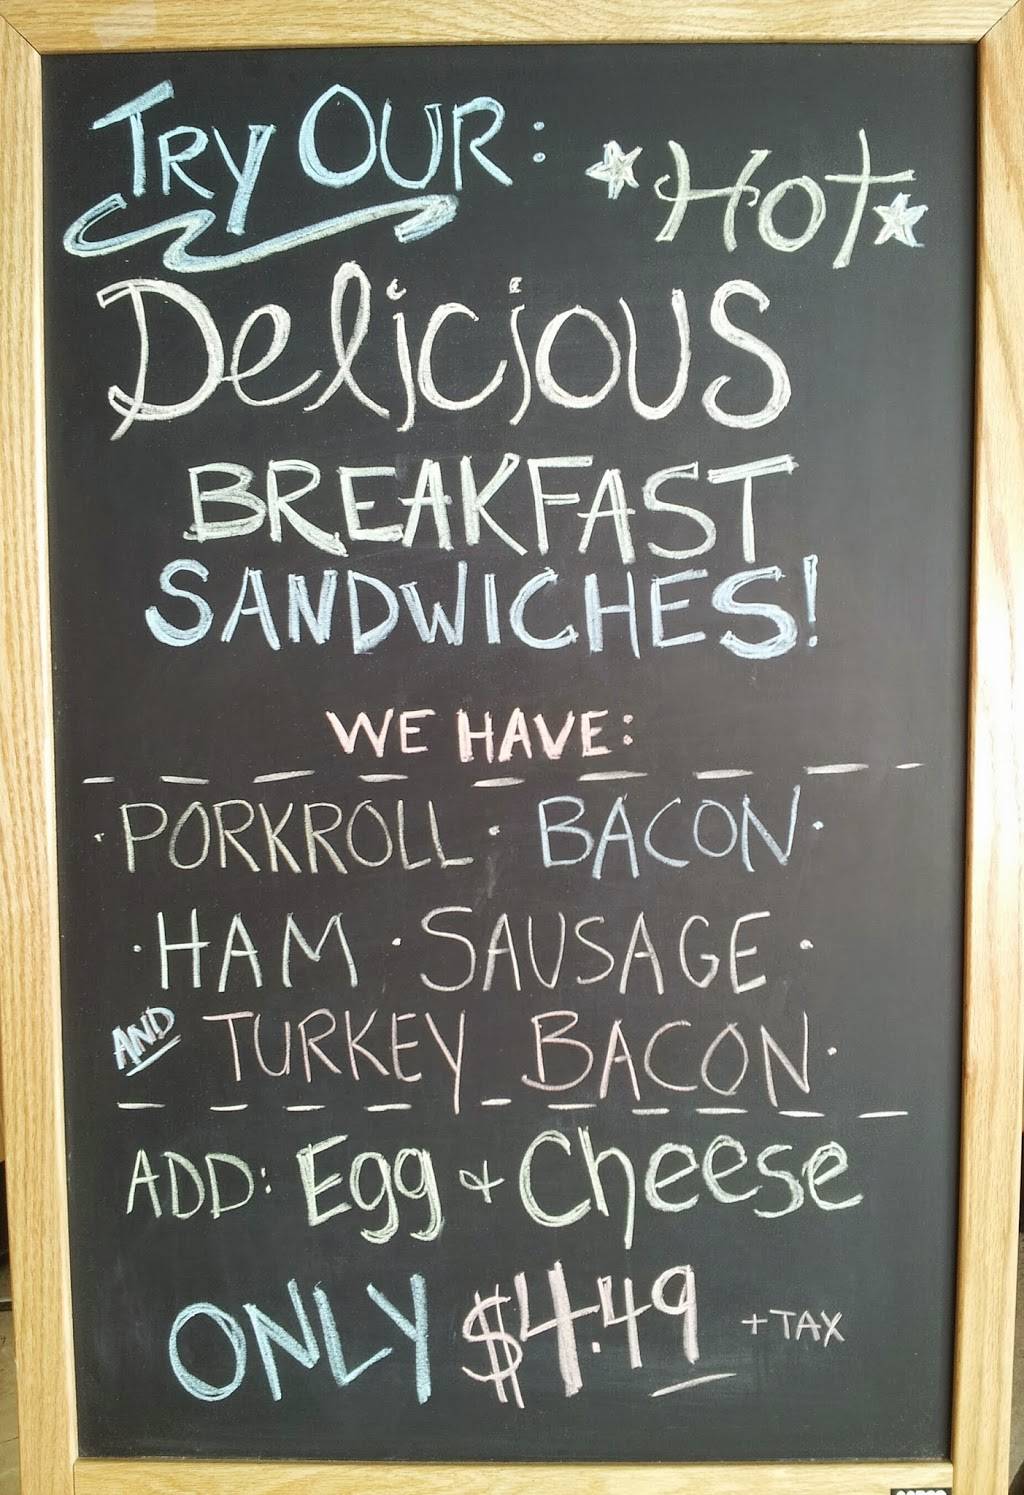 TRY OUR: *HOT*
Delicious
BREAKFAST
SANDWICHES!
WE HAVE:
· PORKROLL · BACON ·
· HAM · SAUSAGE ·
AND TURKEY BACON ·
ADD: Egg + Cheese
ONLY $4.49 + TAX